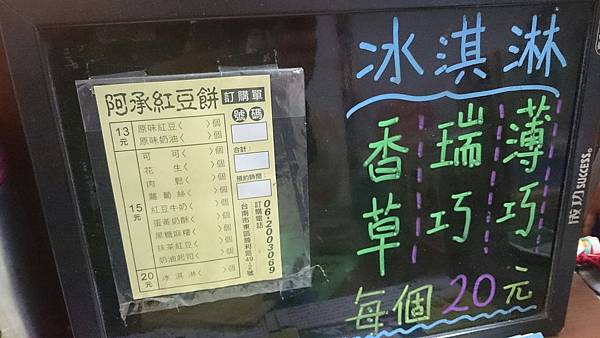 阿承紅豆餅 訂購單
13元
原味紅豆( )個
原味奶油( )個
15元
可可( )個
花生( )個
肉鬆( )個
蘿蔔絲( )個
紅豆牛奶( )個
蛋黃奶酥( )個
黑糖麻糬( )個
抹茶紅豆( )個
奶油起司( )個
20元
冰淇淋( )個
號碼
合計:
預約時間:
訂購電話
06-2003069
台南市東區勝利路49-2號
冰淇淋
薄巧
瑞巧
香草
每個20元
成功 SUCCESS®